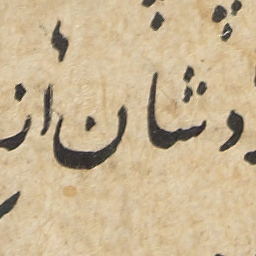 و شان از